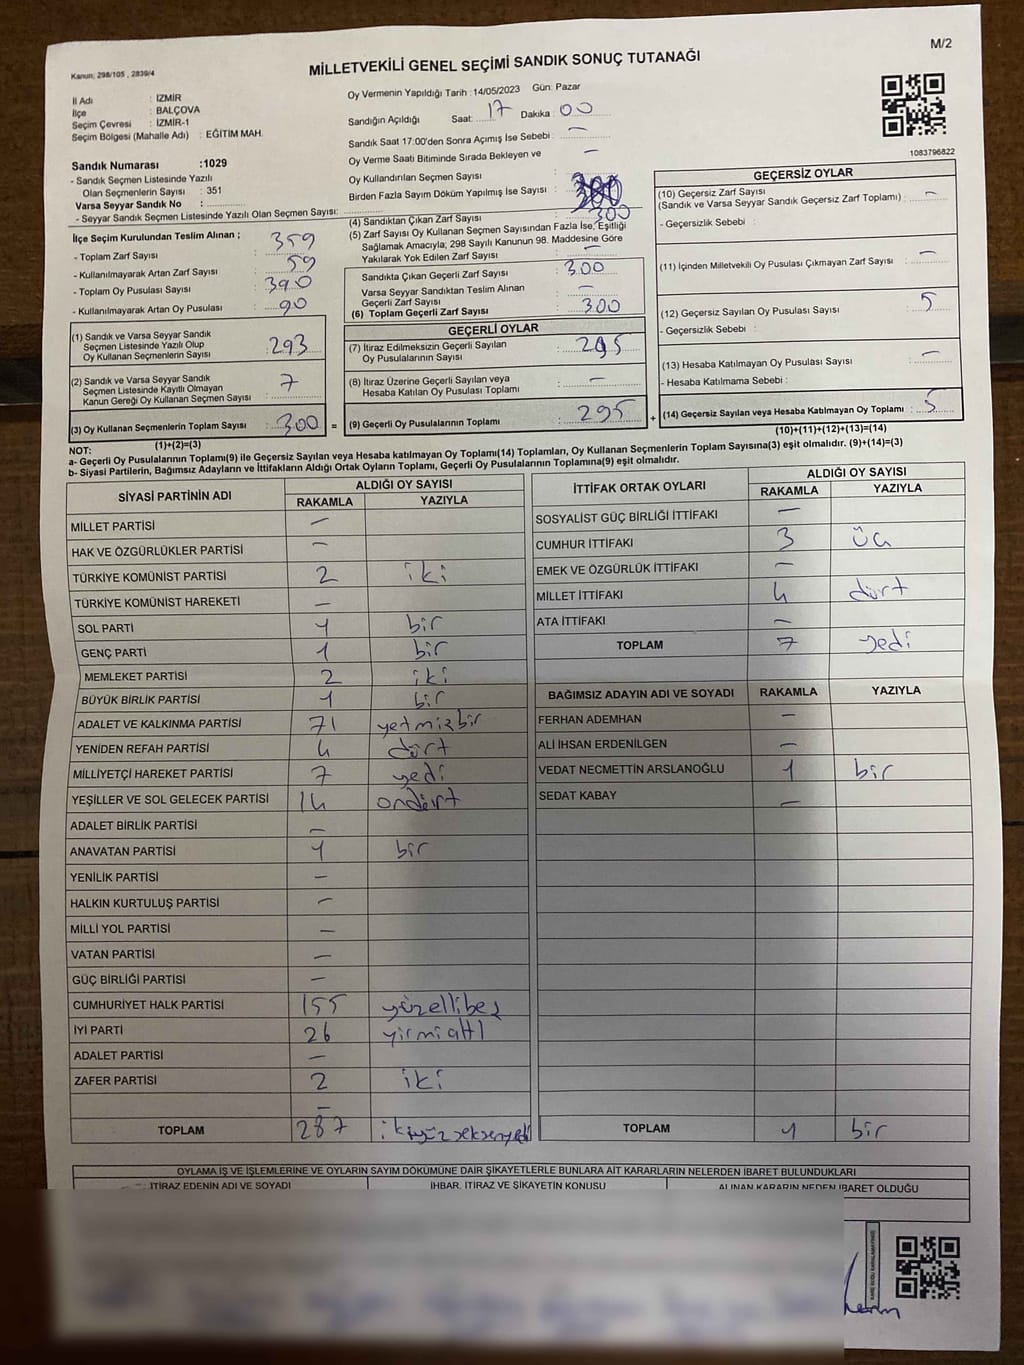 M/2
Kanun; 298/105 , 2839/4
MİLLETVEKİLİ GENEL SEÇİMİ SANDIK SONUÇ TUTANAĞI
İl Adı : İZMİR
İlçe : BALÇOVA
Seçim Çevresi : İZMİR-1
Seçim Bölgesi (Mahalle Adı) : EĞİTİM MAH.
Sandık Numarası :1029
- Sandık Seçmen Listesinde Yazılı
Olan Seçmenlerin Sayısı : 351
Varsa Seyyar Sandık No :
- Seyyar Sandık Seçmen Listesinde Yazılı Olan Seçmen Sayısı:
İlçe Seçim Kurulundan Teslim Alınan ;
- Toplam Zarf Sayısı : 359
- Kullanılmayarak Artan Zarf Sayısı : 59
- Toplam Oy Pusulası Sayısı : 390
- Kullanılmayarak Artan Oy Pusulası : 90
(1) Sandık ve Varsa Seyyar Sandık
Seçmen Listesinde Yazılı Olup
Oy Kullanan Seçmenlerin Sayısı : 293
(2) Sandık ve Varsa Seyyar Sandık
Seçmen Listesinde Kayıtlı Olmayan
Kanun Gereği Oy Kullanan Seçmen Sayısı : 7
(3) Oy Kullanan Seçmenlerin Toplam Sayısı : 300
(1)+(2)=(3)
Oy Vermenin Yapıldığı Tarih :14/05/2023 Gün: Pazar
Sandığın Açıldığı Saat: 17 Dakika : 00
Sandık Saat 17:00'den Sonra Açımış İse Sebebi : —
Oy Verme Saati Bitiminde Sırada Bekleyen ve —
Oy Kullandırılan Seçmen Sayısı :
Birden Fazla Sayım Döküm Yapılmış İse Sayısı :
(4) Sandıktan Çıkan Zarf Sayısı : 300
(5) Zarf Sayısı Oy Kullanan Seçmen Sayısından Fazla İse, Eşitliği
Sağlamak Amacıyla; 298 Sayılı Kanunun 98. Maddesine Göre
Yakılarak Yok Edilen Zarf Sayısı : —
Sandıkta Çıkan Geçerli Zarf Sayısı : 300
Varsa Seyyar Sandıktan Teslim Alınan
Geçerli Zarf Sayısı : —
(6) Toplam Geçerli Zarf Sayısı : 300
GEÇERLİ OYLAR
(7) İtiraz Edilmeksizin Geçerli Sayılan
Oy Pusulalarının Sayısı : 295
(8) İtiraz Üzerine Geçerli Sayılan veya
Hesaba Katılan Oy Pusulası Toplamı : —
= (9) Geçerli Oy Pusulalarının Toplamı : 295 +
1083796822
GEÇERSİZ OYLAR
(10) Geçersiz Zarf Sayısı
(Sandık ve Varsa Seyyar Sandık Geçersiz Zarf Toplamı) : —
- Geçersizlik Sebebi :
(11) İçinden Milletvekili Oy Pusulası Çıkmayan Zarf Sayısı : —
(12) Geçersiz Sayılan Oy Pusulası Sayısı : 5
- Geçersizlik Sebebi :
(13) Hesaba Katılmayan Oy Pusulası Sayısı : —
- Hesaba Katılmama Sebebi :
(14) Geçersiz Sayılan veya Hesaba Katılmayan Oy Toplamı : 5
(10)+(11)+(12)+(13)=(14)
NOT:
a- Geçerli Oy Pusulalarının Toplamı(9) ile Geçersiz Sayılan veya Hesaba katılmayan Oy Toplamı(14) Toplamları, Oy Kullanan Seçmenlerin Toplam Sayısına(3) eşit olmalıdır. (9)+(14)=(3)
b- Siyasi Partilerin, Bağımsız Adayların ve İttifakların Aldığı Ortak Oyların Toplamı, Geçerli Oy Pusulalarının Toplamına(9) eşit olmalıdır.
SİYASİ PARTİNİN ADI ALDIĞI OY SAYISI
RAKAMLA YAZIYLA
MİLLET PARTİSİ —
HAK VE ÖZGÜRLÜKLER PARTİSİ —
TÜRKİYE KOMÜNİST PARTİSİ 2 iki
TÜRKİYE KOMÜNİST HAREKETİ —
SOL PARTİ 1 bir
GENÇ PARTİ 1 bir
MEMLEKET PARTİSİ 2 iki
BÜYÜK BİRLİK PARTİSİ 1 bir
ADALET VE KALKINMA PARTİSİ 71 yetmişbir
YENİDEN REFAH PARTİSİ 4 dört
MİLLİYETÇİ HAREKET PARTİSİ 7 yedi
YEŞİLLER VE SOL GELECEK PARTİSİ 14 ondört
ADALET BİRLİK PARTİSİ —
ANAVATAN PARTİSİ 1 bir
YENİLİK PARTİSİ —
HALKIN KURTULUŞ PARTİSİ —
MİLLİ YOL PARTİSİ —
VATAN PARTİSİ —
GÜÇ BİRLİĞİ PARTİSİ —
CUMHURİYET HALK PARTİSİ 155 yüzellibeş
İYİ PARTİ 26 yirmialtı
ADALET PARTİSİ —
ZAFER PARTİSİ 2 iki
—
TOPLAM 287 ikiyüzseksenyedi
İTTİFAK ORTAK OYLARI ALDIĞI OY SAYISI
RAKAMLA YAZIYLA
SOSYALİST GÜÇ BİRLİĞİ İTTİFAKI —
CUMHUR İTTİFAKI 3 üç
EMEK VE ÖZGÜRLÜK İTTİFAKI —
MİLLET İTTİFAKI 4 dört
ATA İTTİFAKI —
TOPLAM 7 yedi
BAĞIMSIZ ADAYIN ADI VE SOYADI RAKAMLA YAZIYLA
FERHAN ADEMHAN —
ALİ İHSAN ERDENİLGEN —
VEDAT NECMETTİN ARSLANOĞLU 1 bir
SEDAT KABAY —
TOPLAM 1 bir
OYLAMA İŞ VE İŞLEMLERİNE VE OYLARIN SAYIM DÖKÜMÜNE DAİR ŞİKAYETLERLE BUNLARA AİT KARARLARIN NELERDEN İBARET BULUNDUKLARI
İTİRAZ EDENİN ADI VE SOYADI İHBAR, İTİRAZ VE ŞİKAYETİN KONUSU ALINAN KARARIN NEDEN İBARET OLDUĞU
KARE KODU KARALAMAYINIZ